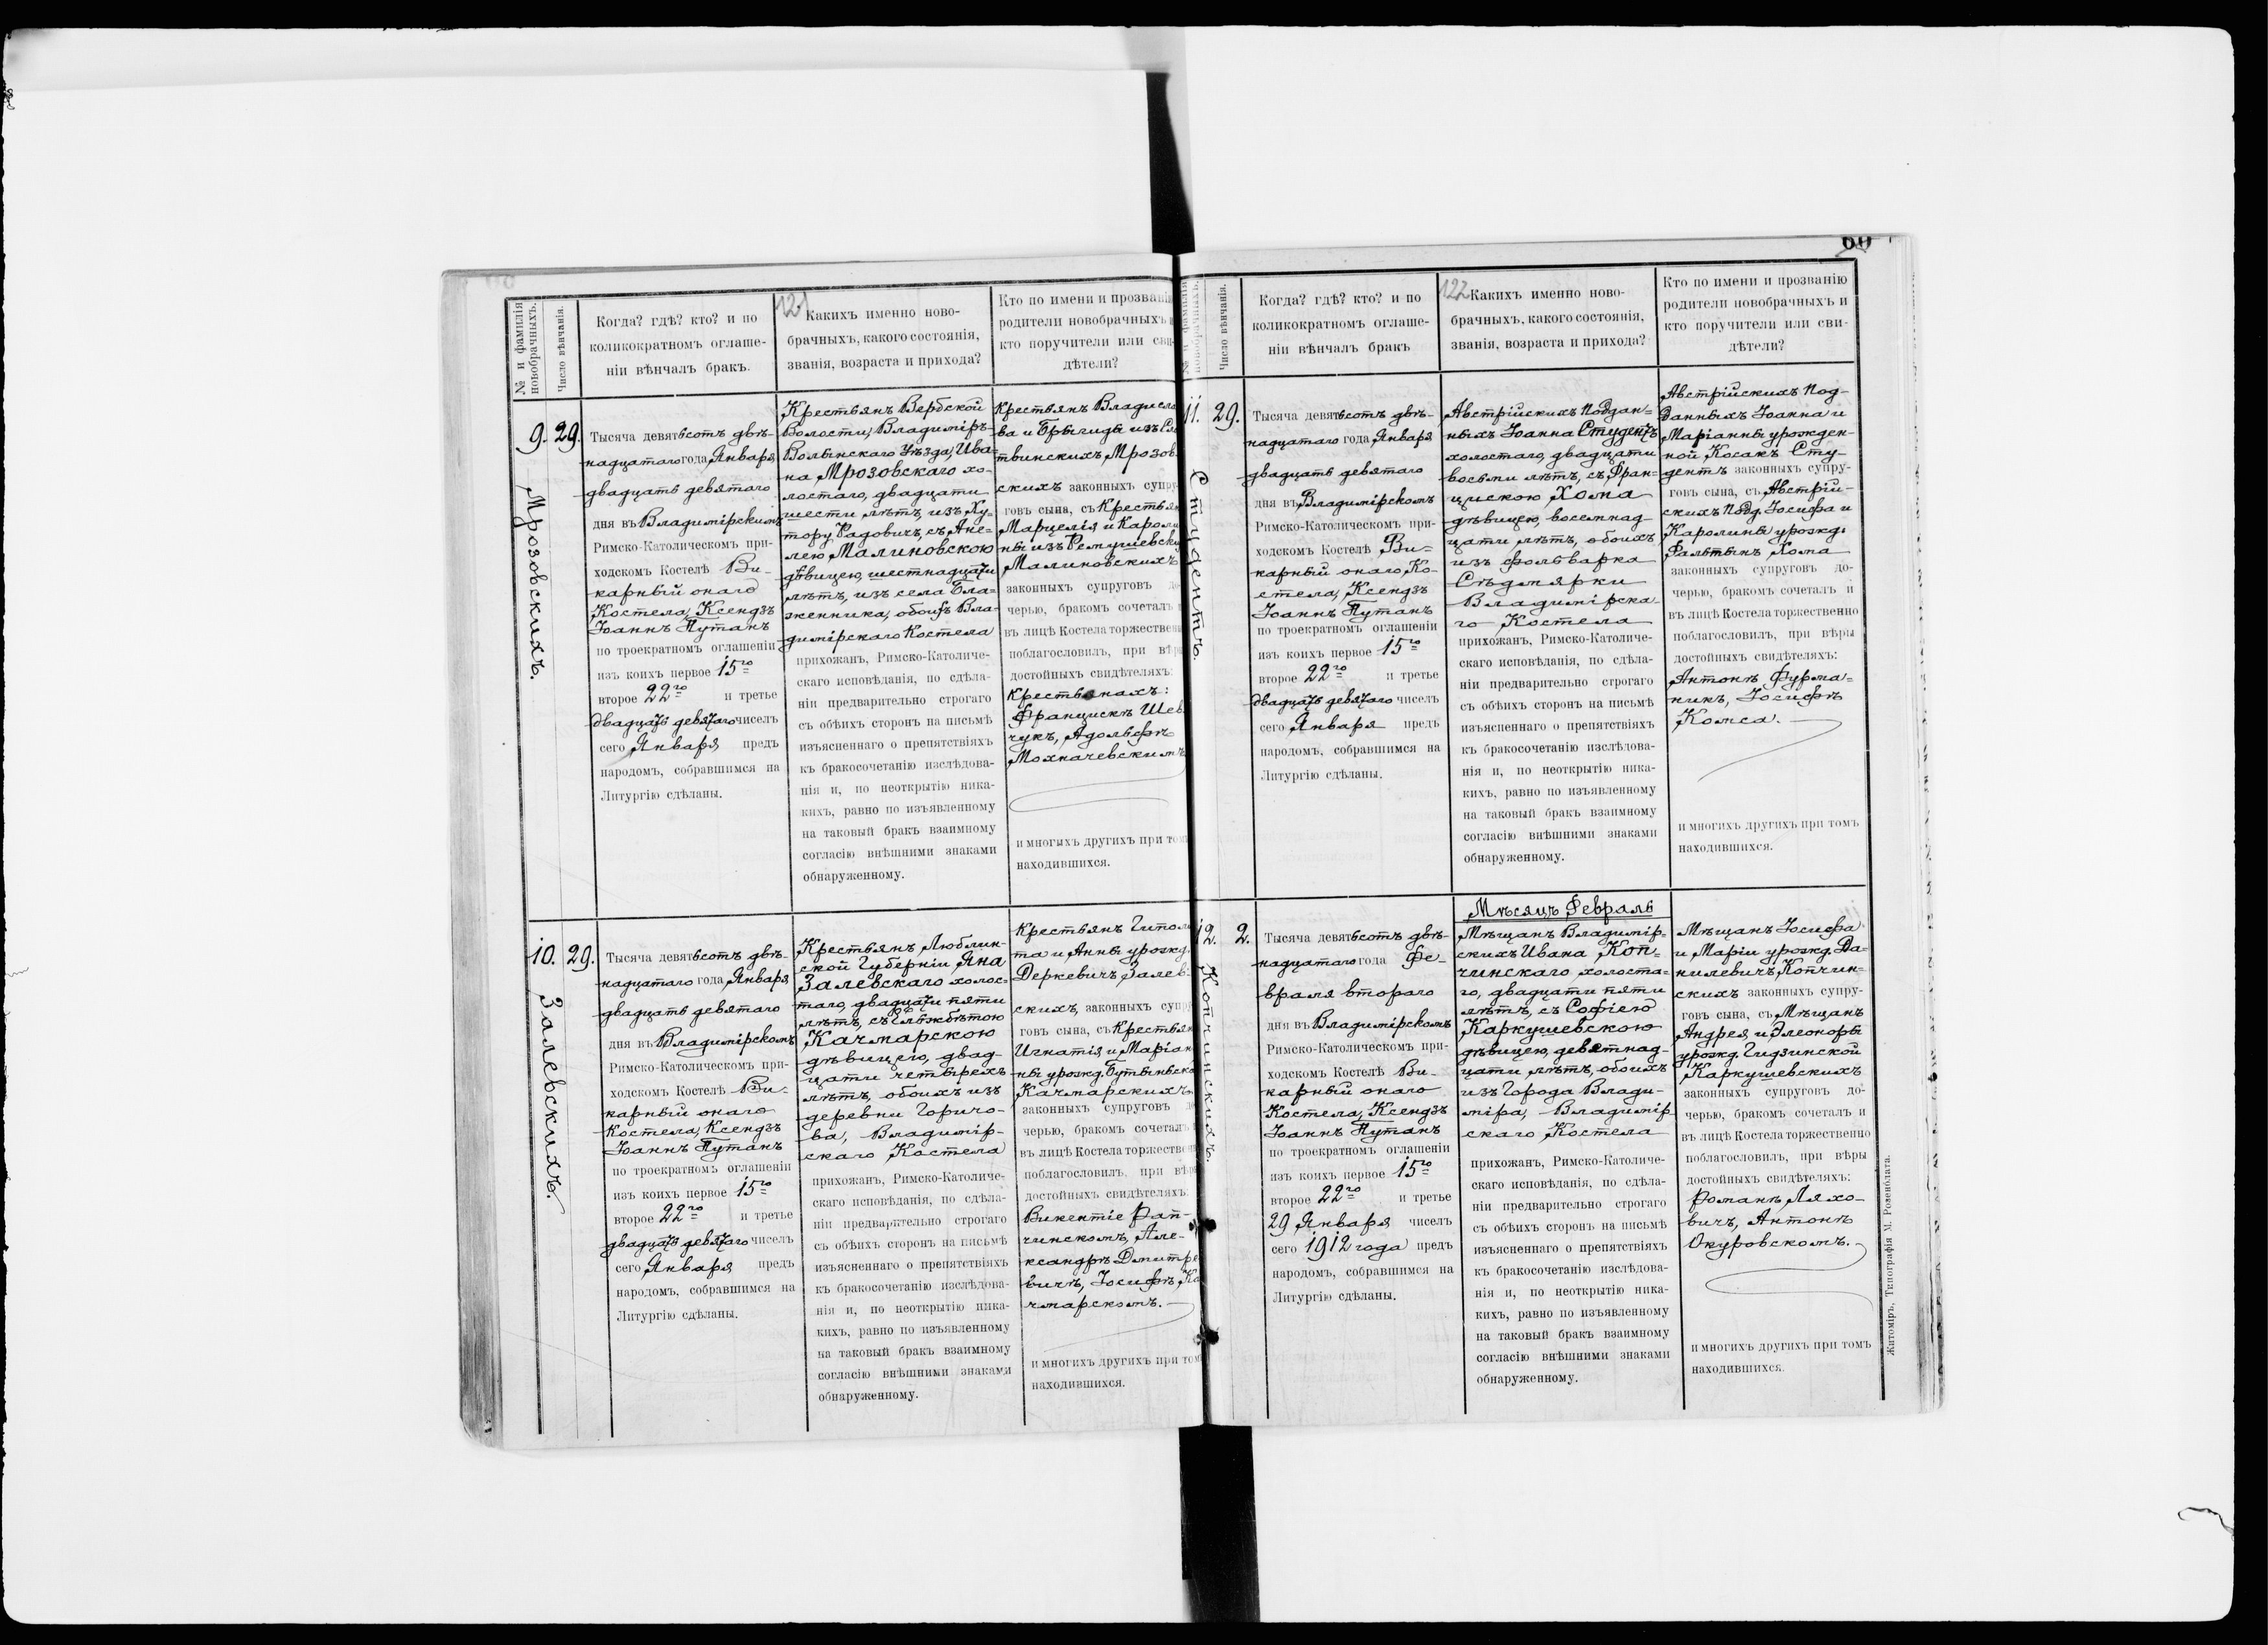 121
№ и фамилія новобрачныхъ.
Число вѣнчанія.
Когда? гдѣ? кто? и по
коликократномъ оглаше-
ніи вѣнчалъ бракъ.
Какихъ именно ново-
брачныхъ, какого состоянія,
званія, возраста и прихода?
Кто по имени и прозванію
родители новобрачныхъ и
кто поручители или сви-
дѣтели?
9.
29.
Мрозовскихъ.
Тысяча девятьсотъ двѣ-
надцатаго года Января
двадцать девятаго
дня въ Владимірскомъ
Римско-Католическомъ при-
ходскомъ Костелѣ Ви-
карный онаго
Костела, Ксендзъ
Іоаннъ Путанъ
по троекратномъ оглашеніи
изъ коихъ первое 15го
второе 22го и третье
двадцать девятаго чиселъ
сего Января предъ
народомъ, собравшимся на
Литургію сдѣланы.
Крестьянъ Вербской
Волости, Владиміръ-
Волынскаго Уѣзда, Ива-
на Мрозовскаго хо-
лостаго, двадцати
шести лѣтъ, изъ Ху-
тору Радовичъ, съ Ане-
лею Малиновскою
дѣвицею, шестнадцати
лѣтъ, изъ села Бла-
женника, обоихъ Вла-
димірскаго Костела
прихожанъ, Римско-Католиче-
скаго исповѣданія, по сдѣла-
ніи предварительно строгаго
съ обѣихъ сторонъ на письмѣ
изъясненнаго о препятствіяхъ
къ бракосочетанію изслѣдова-
нія и, по неоткрытію ника-
кихъ, равно по изъявленному
на таковый бракъ взаимному
согласію внѣшними знаками
обнаруженному.
Крестьянъ Владисла
ва и Бригиды изъ
твинскихъ Мрозов
скихъ законныхъ супру
говъ сына, съ Крестьян
Марцелія и Кароли
ны изъ Ремушевски
Малиновскихъ
законныхъ супруговъ до
черью, бракомъ сочеталъ и
въ лицѣ Костела торжествен
поблагословилъ, при вѣр
достойныхъ свидѣтеляхъ:
Крестьянахъ:
Францискѣ Шев
чукъ, Адольфѣ
Мохначевскимъ
и многихъ другихъ при том
находившихся.
10.
29.
Залевскихъ.
Тысяча девятьсотъ двѣ-
надцатаго года Января
двадцать девятаго
дня въ Владимірскомъ
Римско-Католическомъ при-
ходскомъ Костелѣ Ви-
карный онаго
Костела, Ксендзъ
Іоаннъ Путанъ
по троекратномъ оглашеніи
изъ коихъ первое 15го
второе 22го и третье
двадцать девятаго чиселъ
сего Января предъ
народомъ, собравшимся на
Литургію сдѣланы.
Крестьянъ Люблин-
ской Губерніи Яна
Залевскаго холос-
таго, двадцати пяти
лѣтъ, съ Ельжбѣтою
Качмарскою
дѣвицею, двад-
цати четырехъ
лѣтъ, обоихъ изъ
деревни Горичо-
ва, Владимір-
скаго Костела
прихожанъ, Римско-Католиче-
скаго исповѣданія, по сдѣла-
ніи предварительно строгаго
съ обѣихъ сторонъ на письмѣ
изъясненнаго о препятствіяхъ
къ бракосочетанію изслѣдова-
нія и, по неоткрытію ника-
кихъ, равно по изъявленному
на таковый бракъ взаимному
согласію внѣшними знаками
обнаруженному.
Крестьянъ Гиполи
та и Анны урожд.
Деркевичъ Залев-
скихъ, законныхъ супру
говъ сына, съ Крестьян
Игнатія и Маріан
ны урожд. Бутыньско
Качмарскихъ
законныхъ супруговъ до
черью, бракомъ сочеталъ
въ лицѣ Костела торжествен
поблагословилъ, при вѣр
достойныхъ свидѣтеляхъ:
Викентіе Рап-
чинскомъ, Але-
ксандрѣ Дмитре
вичъ, Іосифѣ Ка
чмарскомъ.
и многихъ другихъ при том
находившихся.
60
122
№ и фамилія новобрачныхъ.
Число вѣнчанія.
Когда? гдѣ? кто? и по
коликократномъ оглаше-
ніи вѣнчалъ бракъ
Какихъ именно ново-
брачныхъ, какого состоянія,
званія, возраста и прихода?
Кто по имени и прозванію
родители новобрачныхъ и
кто поручители или сви-
дѣтели?
11.
29.
Студентъ.
Тысяча девятьсотъ двѣ-
надцатаго года Января
двадцать девятаго
дня въ Владимірскомъ
Римско-Католическомъ при-
ходскомъ Костелѣ Ви-
карный онаго Ко-
стела, Ксендзъ
Іоаннъ Путанъ
по троекратномъ оглашеніи
изъ коихъ первое 15го
второе 22го и третье
двадцать девятаго чиселъ
сего Января предъ
народомъ, собравшимся на
Литургію сдѣланы.
Австрійскихъ Поддан-
ныхъ Іоанна Студентъ
холостаго, двадцати
восьми лѣтъ, съ Фран-
цискою Хома
дѣвицею, восемнад-
цати лѣтъ, обоихъ
изъ фольварка
Сѣдмярки
Владимірска-
го Костела
прихожанъ, Римско-Католиче-
скаго исповѣданія, по сдѣла-
ніи предварительно строгаго
съ обѣихъ сторонъ на письмѣ
изъясненнаго о препятствіяхъ
къ бракосочетанію изслѣдова-
нія и, по неоткрытію ника-
кихъ, равно по изъявленному
на таковый бракъ взаимному
согласію внѣшними знаками
обнаруженному.
Австрійскихъ под-
данныхъ Іоанна и
Маріанны урожден-
ной Косакъ Сту-
дентъ законныхъ супру-
говъ сына, съ Австрій-
скихъ Подд. Іосифа и
Каролины урожд.
Фальтынъ Хома
законныхъ супруговъ до-
черью, бракомъ сочеталъ и
въ лицѣ Костела торжественно
поблагословилъ, при вѣры
достойныхъ свидѣтеляхъ:
Антонѣ Фурма-
никъ, Іосифѣ
Комса.
и многихъ другихъ при томъ
находившихся.
12.
2.
Копчинскихъ.
Тысяча девятьсотъ двѣ-
надцатаго года Фе-
враля второго
дня въ Владимірскомъ
Римско-Католическомъ при-
ходскомъ Костелѣ Ви-
карный онаго
Костела, Ксендзъ
Іоаннъ Путанъ
по троекратномъ оглашеніи
изъ коихъ первое 15го
второе 22го и третье
29 Января чиселъ
сего 1912 года предъ
народомъ, собравшимся на
Литургію сдѣланы.
Мѣсяцъ Февраль
Мѣщанъ Владимір-
скихъ Ивана Коп-
чинскаго холоста-
го, двадцати пяти
лѣтъ, съ Софіею
Каркушевскою
дѣвицею, девятнад-
цати лѣтъ, обоихъ
изъ Города Влади-
міра, Владимір
скаго Костела
прихожанъ, Римско-Католиче-
скаго исповѣданія, по сдѣла-
ніи предварительно строгаго
съ обѣихъ сторонъ на письмѣ
изъясненнаго о препятствіяхъ
къ бракосочетанію изслѣдова-
нія и, по неоткрытію ника-
кихъ, равно по изъявленному
на таковый бракъ взаимному
согласію внѣшними знаками
обнаруженному.
Мѣщанъ Іосифа
и Маріи урожд. Да-
нилевичъ Копчин-
скихъ законныхъ супру-
говъ сына, съ Мѣщанъ
Андрея и Элеоноры
урожд. Гидзинской
Каркушевскихъ
законныхъ супруговъ до-
черью, бракомъ сочеталъ и
въ лицѣ Костела торжественно
поблагословилъ, при вѣры
достойныхъ свидѣтеляхъ:
Романѣ Ляхо-
вичъ, Антонѣ
Окуровскомъ.
и многихъ другихъ при томъ
находившихся.
Житоміръ, Типографія М. Розенблата.